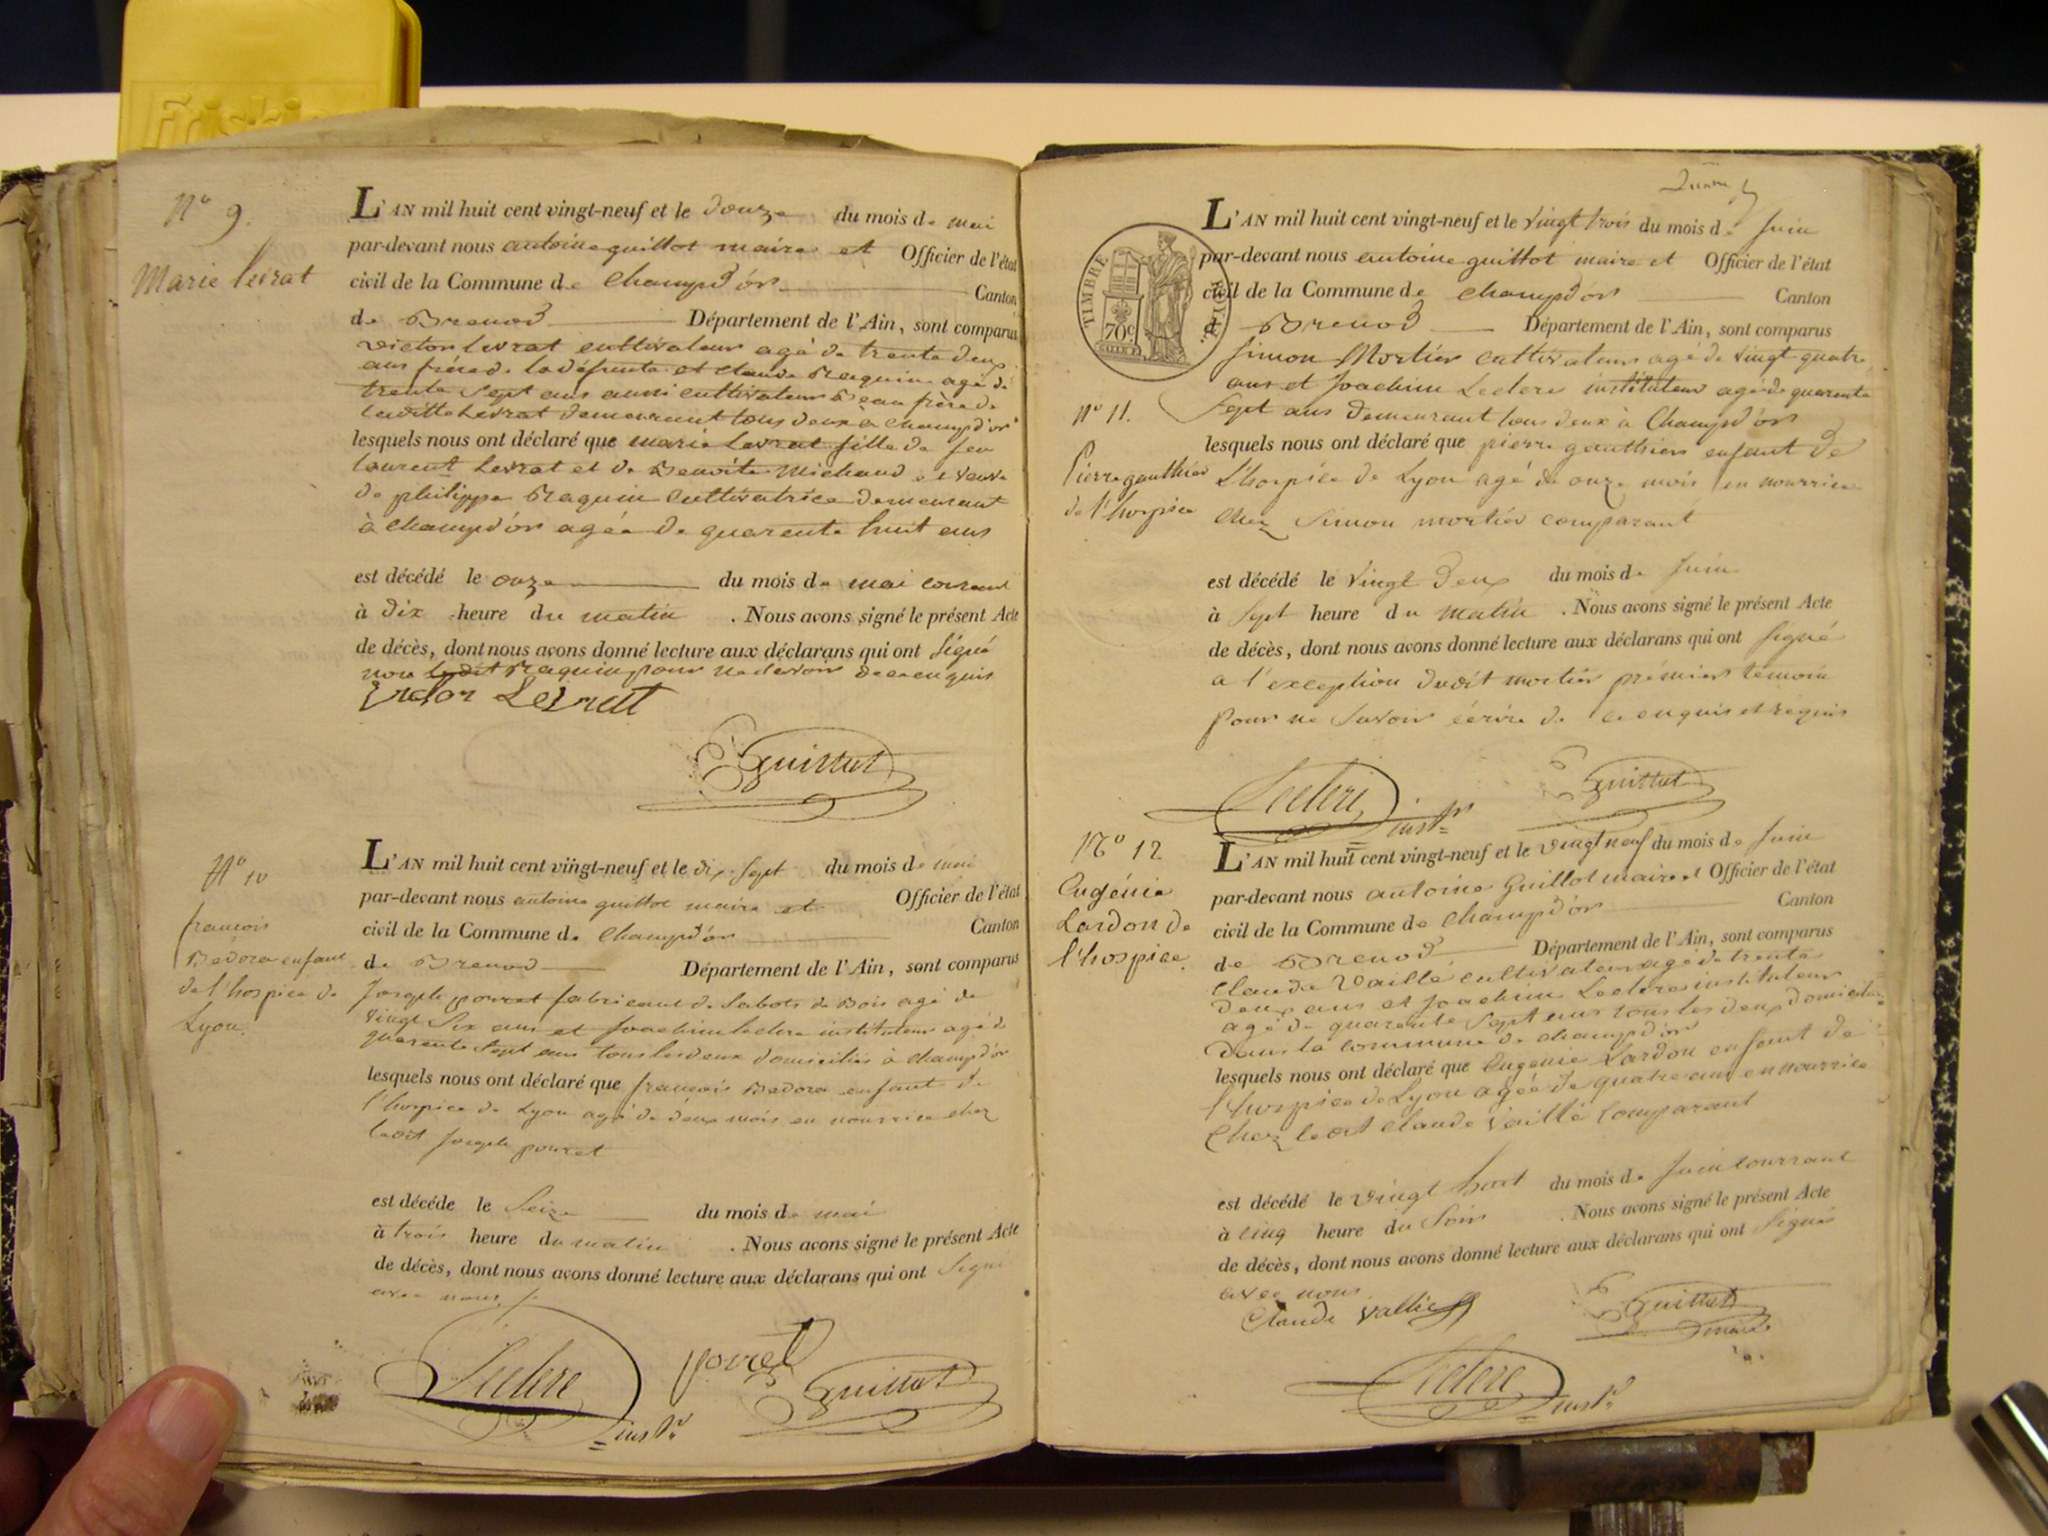 Friskies
N° 9.
Marie Levrat
L'AN mil huit cent vingt-neuf et le douze du mois de mai
par-devant nous antoine guillot maire et Officier de l'état
civil de la Commune de Champd'or Canton
de Brenod Département de l'Ain, sont comparus
victor Levrat cultivateur agé de trente deux
ans frère de la défunte et Claude Raquin agé de
trente Sept ans aussi cultivateur Beau frère de
laditte Levrat demeurant tous deux à Champd'or
lesquels nous ont déclaré que marie Levrat fille de feu
laurent Levrat et de Benoite Michaud et veuve
de philippe Raquin Cultivatrice demeurant
à champd'or agée de quarente huit ans
est décédé le onze du mois de mai courant
à dix heure du matin . Nous avons signé le présent Acte
de décès, dont nous avons donné lecture aux déclarans qui ont signé
non Raquin pour ne savoir de ce enquis
Victor Levratt
Guillot
N° 10
francois
Bedora enfant
de l'hospice de
Lyon.
L'AN mil huit cent vingt-neuf et le dix Sept du mois de mai
par-devant nous antoine guillot maire et Officier de l'état
civil de la Commune de Champd'or Canton
de Brenod Département de l'Ain, sont comparus
Joseph pourret fabricant de Sabots de Bois agé de
vingt Six ans et Joachim Leclere instituteur agé de
quarente Sept ans tous les deux domiciliés à champd'or
lesquels nous ont déclaré que francois Bedora enfant de
l'hospice de Lyon agé de deux mois en nourrice chez
ledit Joseph pourret
est décédé le Seize du mois de mai
à trois heure du matin . Nous avons signé le présent Acte
de décès, dont nous avons donné lecture aux déclarans qui ont Signé
avec nous
Leclere instr
pourret
Guillot
TIMBRE ROYAL
70c
L'AN mil huit cent vingt-neuf et le vingt trois du mois de Juin
par-devant nous antoine guillot maire et Officier de l'état
civil de la Commune de Champd'or Canton
de Brenod Département de l'Ain, sont comparus
Simon Mortier cultivateur agé de vingt quatre
ans et Joachim Leclere instituteur agé de quarente
Sept ans demeurant tous deux à Champd'or
N° 11.
Pierre gauthier
de l'hospice
lesquels nous ont déclaré que pierre gauthier enfant de
L'hospice de Lyon agé de onze mois en nourrice
chez Simon mortier comparant
est décédé le vingt deux du mois de Juin
à Sept heure du matin . Nous avons signé le présent Acte
de décès, dont nous avons donné lecture aux déclarans qui ont signé
a l'exception dudit mortier prémier témoin
pour ne Savoir écrire de ce enquis et requis
Leclere instr
Guillot
N° 12
Eugénie
Lardon de
l'hospice.
L'AN mil huit cent vingt-neuf et le vingt neuf du mois de Juin
par-devant nous antoine Guillot maire et Officier de l'état
civil de la Commune de Champd'or Canton
de Brenod Département de l'Ain, sont comparus
Claude Vaillé cultivateur agé de trente
deux ans et Joachim Leclere instituteur
agé de quarente Sept ans tous les deux domiciliés
dans la commune de champd'or
lesquels nous ont déclaré que Eugenie Lardon enfant de
l'hospice de Lyon agée de quatre ans en nourrice
Chez ledit Claude Vaillé Comparant
est décédé le vingt huit du mois de Juin courrant
à cinq heure du Soir . Nous avons signé le présent Acte
de décès, dont nous avons donné lecture aux déclarans qui ont Signé
avec nous
Claude Vallie
Guillot
maire
Leclere instr